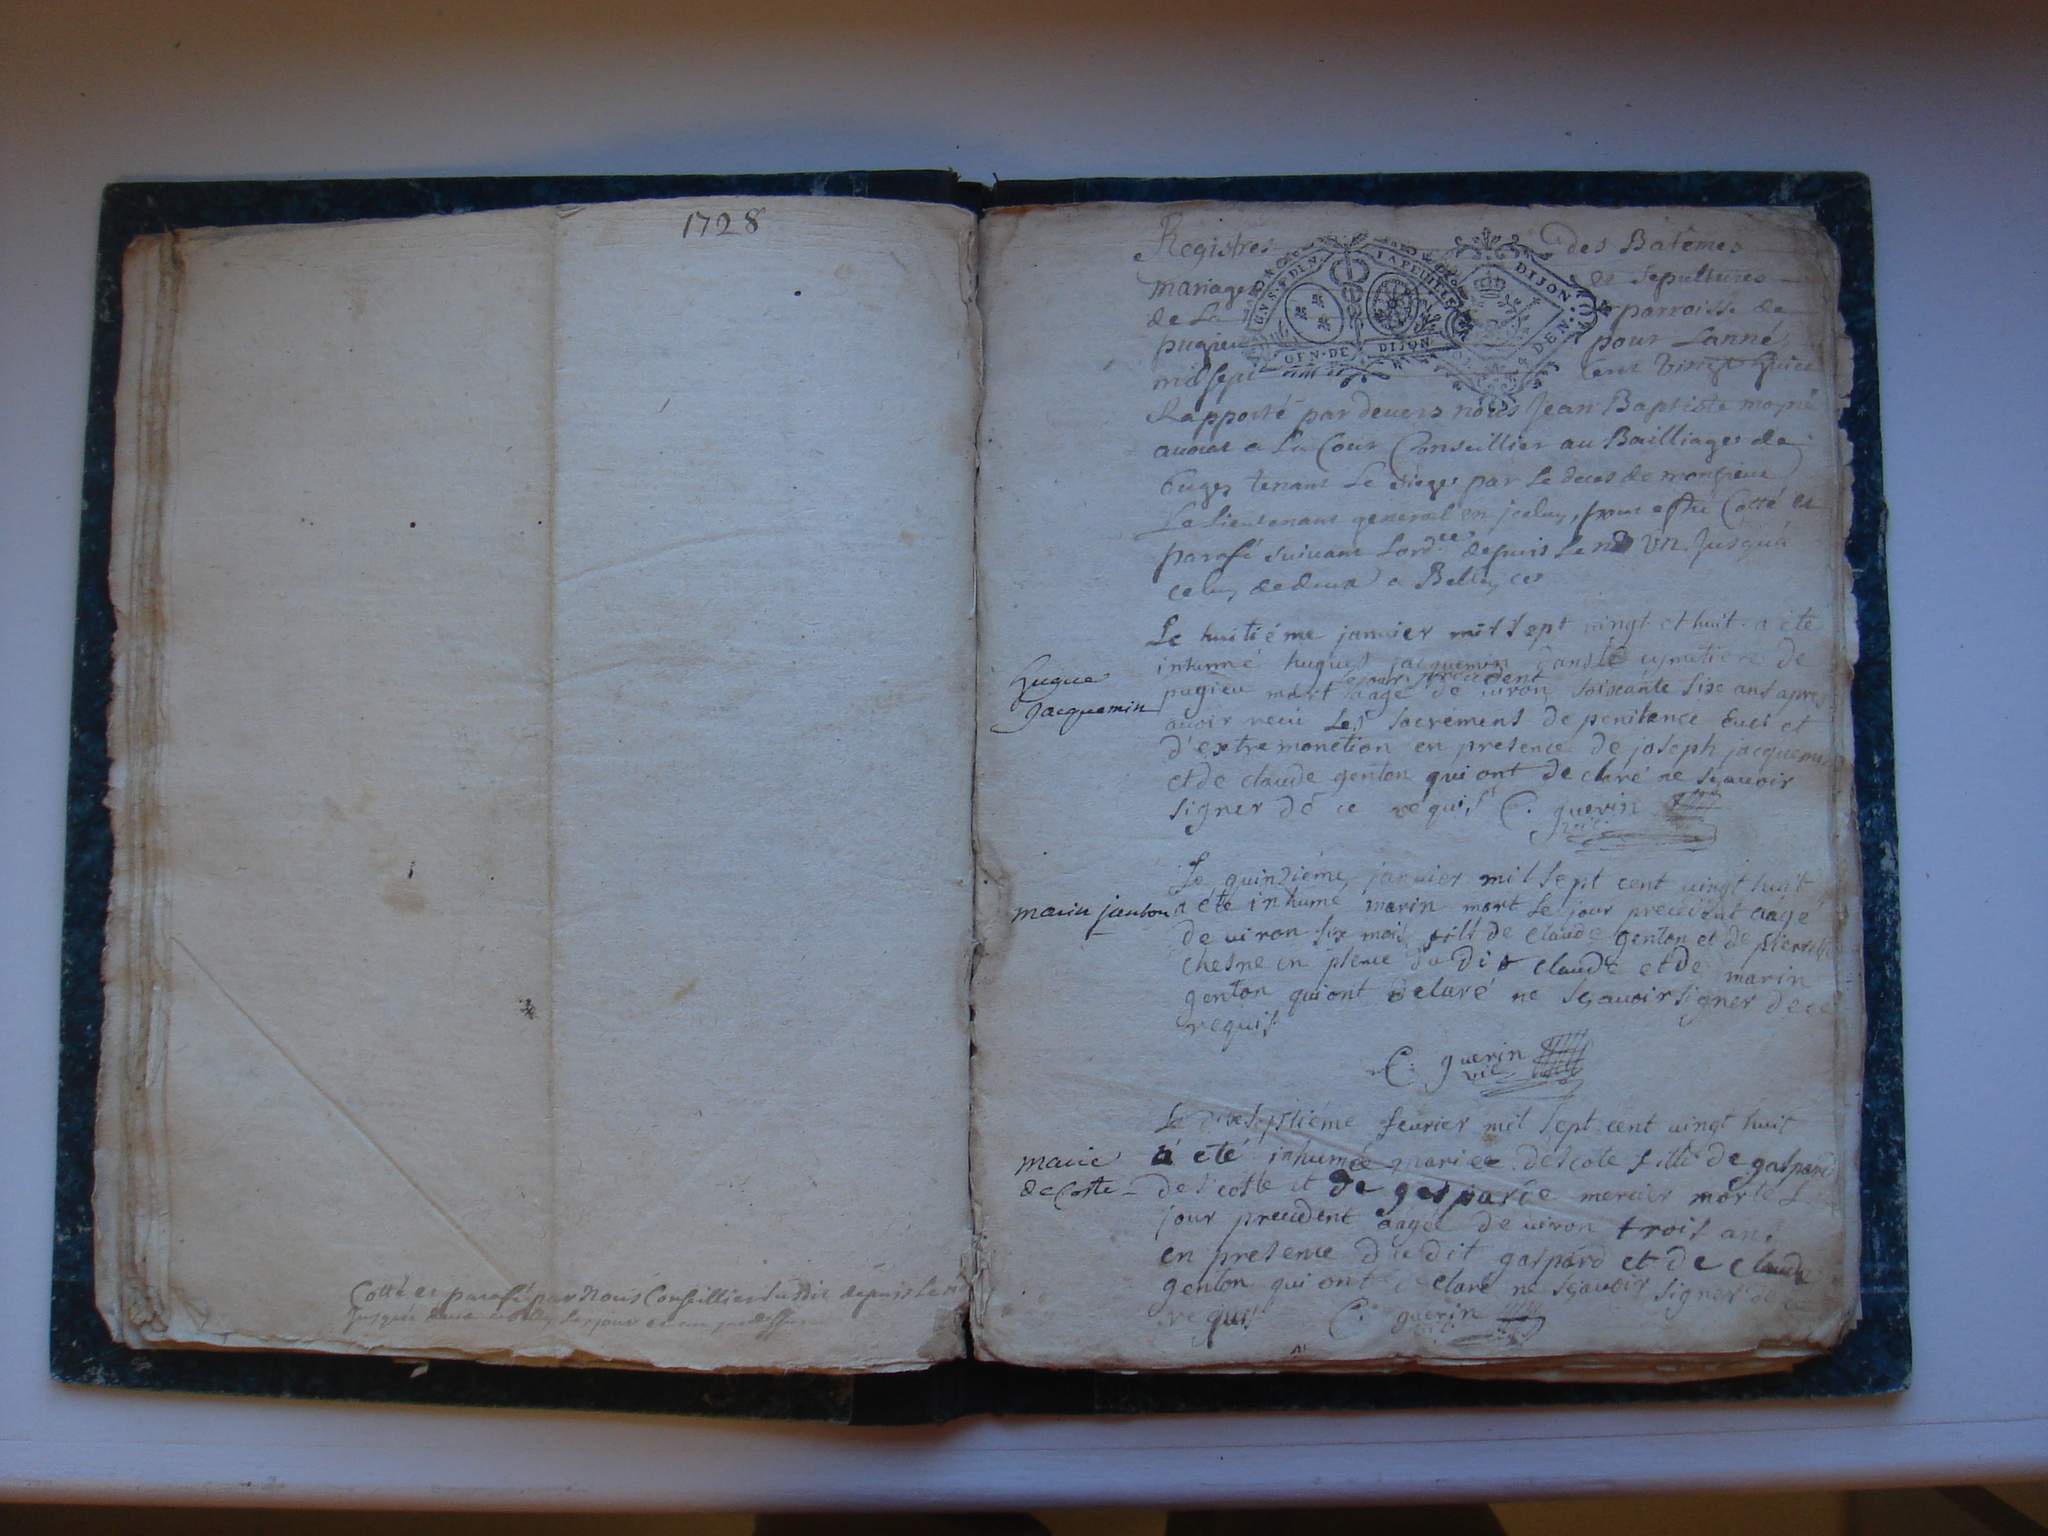 1728
Cotté et parafé par Nous Conseillier susdit depuis le
Registres des Batêmes
mariages de sepultures
de La parroisse de
pugieu pour Lanné
mil sept cent vingt huict
Rapporté par devers nous Jean Baptiste moyne
avocat a La Cour Conseillier au Bailliage de
Bugey tenant Le siege par Le deces de monsieur
Le Lieutenant general en jceluy, pour estre Cotté et
parafé suivant Lordce depuis Le no un Jusqu'a
celuy de deux a Belley ce
GEN DE DIJON
DIJON
Le huitiéme janvier mil sept vingt et huit a eté
inhumé hugues jacquemin dans le cymetiere de
jour precedent
pugieu mort aagé de viron soixante six ans apres
avoir receu les sacrémens de penitence euc et
d'extremonction en presence de joseph jacquemin
et de claude genton qui ont declaré ne sçavoir
signer de ce réquis C. guerin
hugue
Jacquemin
Le quinziéme janvier mil sept cent vingt huit
a été inhumé marin mort le jour precedent aagé
de viron six mois fils de claude genton et de pierrette
chesne en pñce du dit claude et de marin
genton qui ont declaré ne sçavoir signer de ce
requis
C. guerin
vic
marin
Le dixseptiéme fevrier mil sept cent vingt huit
á eté inhumée mariee descote fille de gaspard
des coste et de gasparde mercier morte le
jour precedent aagée de viron trois ans
en presence du dit gaspard et de claude
genton qui ont declaré ne sçavoir signer de ce
requis C. guerin
marie
de Coste